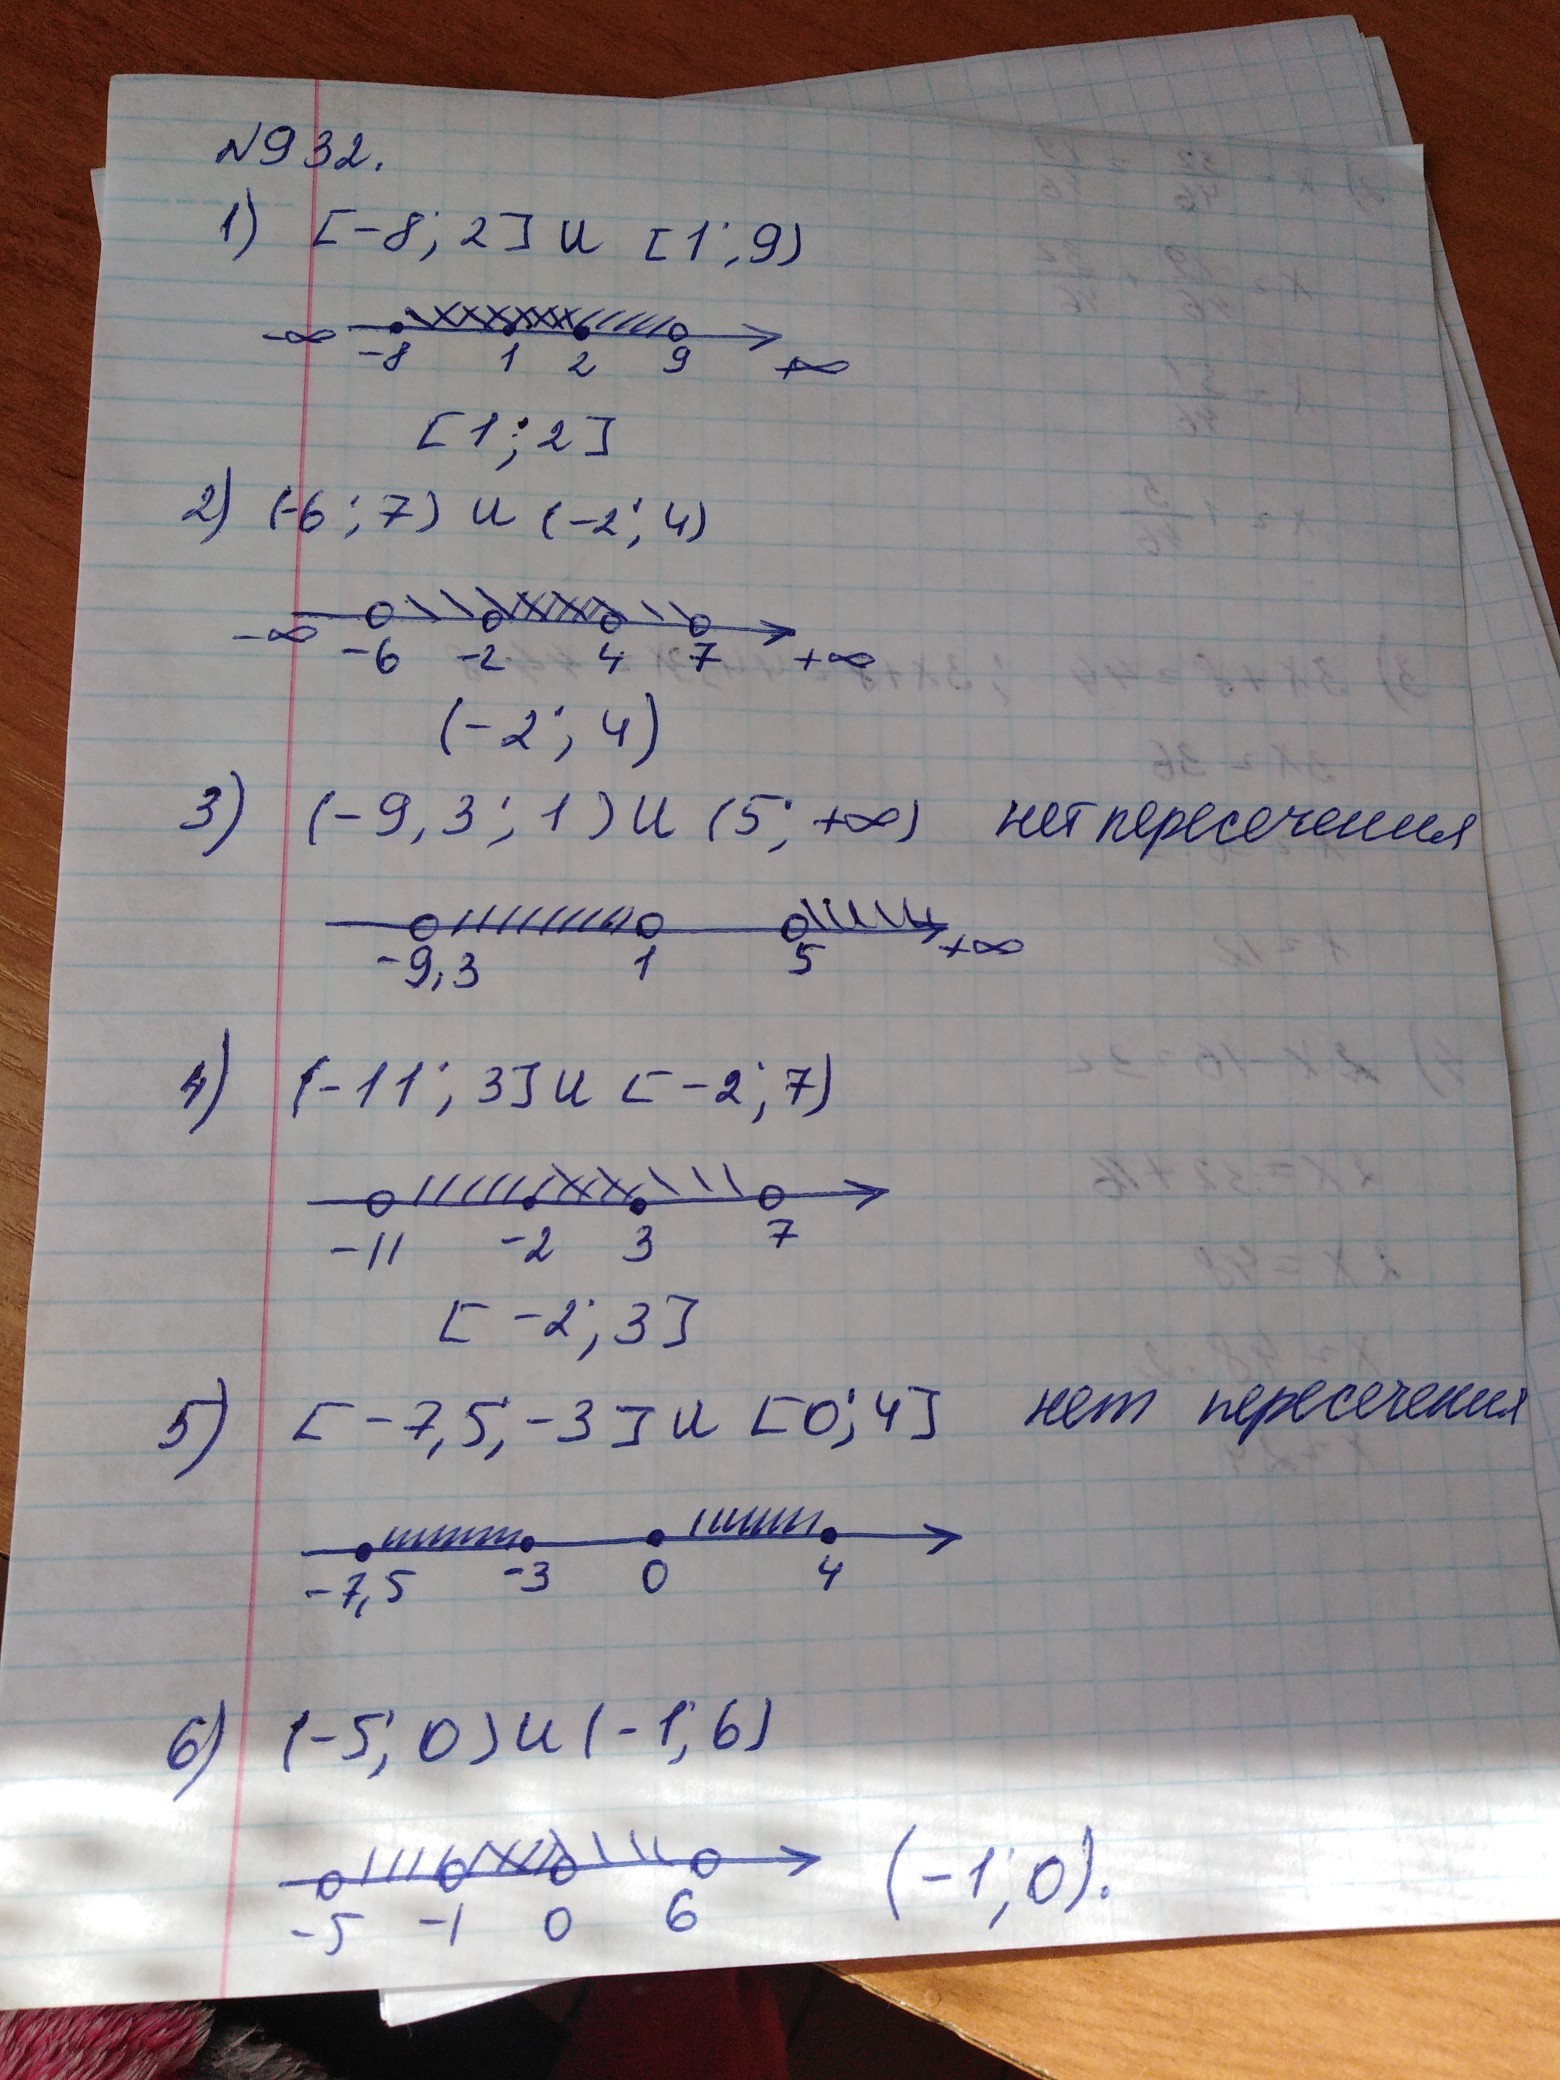 N932.
1) [-8; 2] и [1; 9)
-∞ -8 1 2 9 +∞
[1; 2]
2) (-6; 7) и (-2; 4)
-∞ -6 -2 4 7 +∞
(-2; 4)
3) (-9,3; 1) и (5; +∞) нет пересечения
-9,3 1 5 +∞
4) (-11; 3] и [-2; 7)
-11 -2 3 7
[-2; 3]
5) [-7,5; -3] и [0; 4] нет пересечения
-7,5 -3 0 4
6) (-5; 0) и (-1; 6)
-5 -1 0 6 (-1; 0).